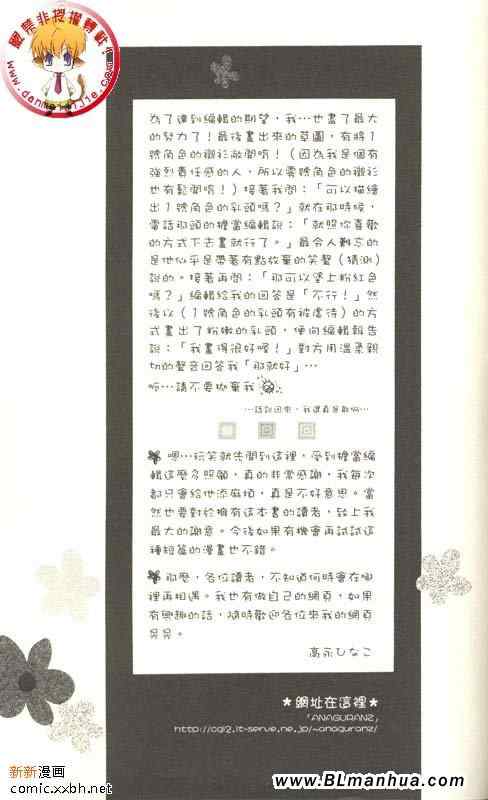 嚴禁非授權轉載
www.danmeishijie.com
為了達到編輯的期望，我…也畫了最大
的努力了！最後畫出來的草圖，有將1
號角色的襯衫敞開唷！（因為我是個有
強烈責任感的人，所以零號角色的襯衫
也有鬆開唷！）接著我問：「可以描繪
出1號角色的乳頭嗎？」就在那時候，
電話那頭的擔當編輯說：「就照你喜歡
的方式下去畫就行了。」最令人難忘的
是他似乎是帶著有點放棄的笑聲（猜測）
說的。接著再問：「那可以塗上粉紅色
嗎？」編輯給我的回答是「不行！」然
後以（1號角色的乳頭有被虐待）的方
式畫出了粉嫩的乳頭，便向編輯報告
說：「我畫得很好喔！」對方用溫柔親
切的聲音回答我「那就好」…
啊…請不要拋棄我
…話說回來，我還真是敢啊…
嗯…玩笑就先開到這裡，受到擔當編
輯這麼多照顧，真的非常感謝，我每次
都只會給他添麻煩，真是不好意思。當
然也要對於擁有這本書的讀者，致上我
最大的謝意。今後如果有機會再試試這
種短篇的漫畫也不錯。
那麼，各位讀者，不知道何時會在哪
裡再相遇。我也有做自己的網頁，如果
有興趣的話，隨時歡迎各位來我的網頁
晃晃。
高永ひなこ
★網址在這裡★
「ANAGURANZ」
http://cgi2.it-serve.ne.jp/~anaguranz/
新新漫画
comic.xxbh.net
www.BLmanhua.com